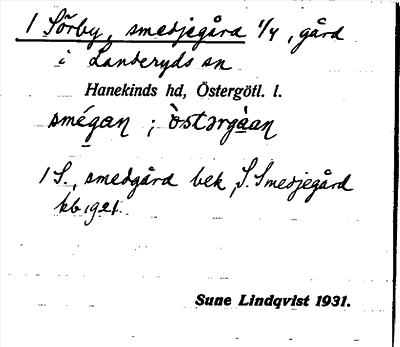 1 Sörby, smedjegård 1/4, gård
i Landeryds sn
Hanekinds hd, Östergötl. l.
smégan ; òstərgàan
1 S., smedgård bek, S. Smedjegård
kb 1921.
Sune Lindqvist 1931.